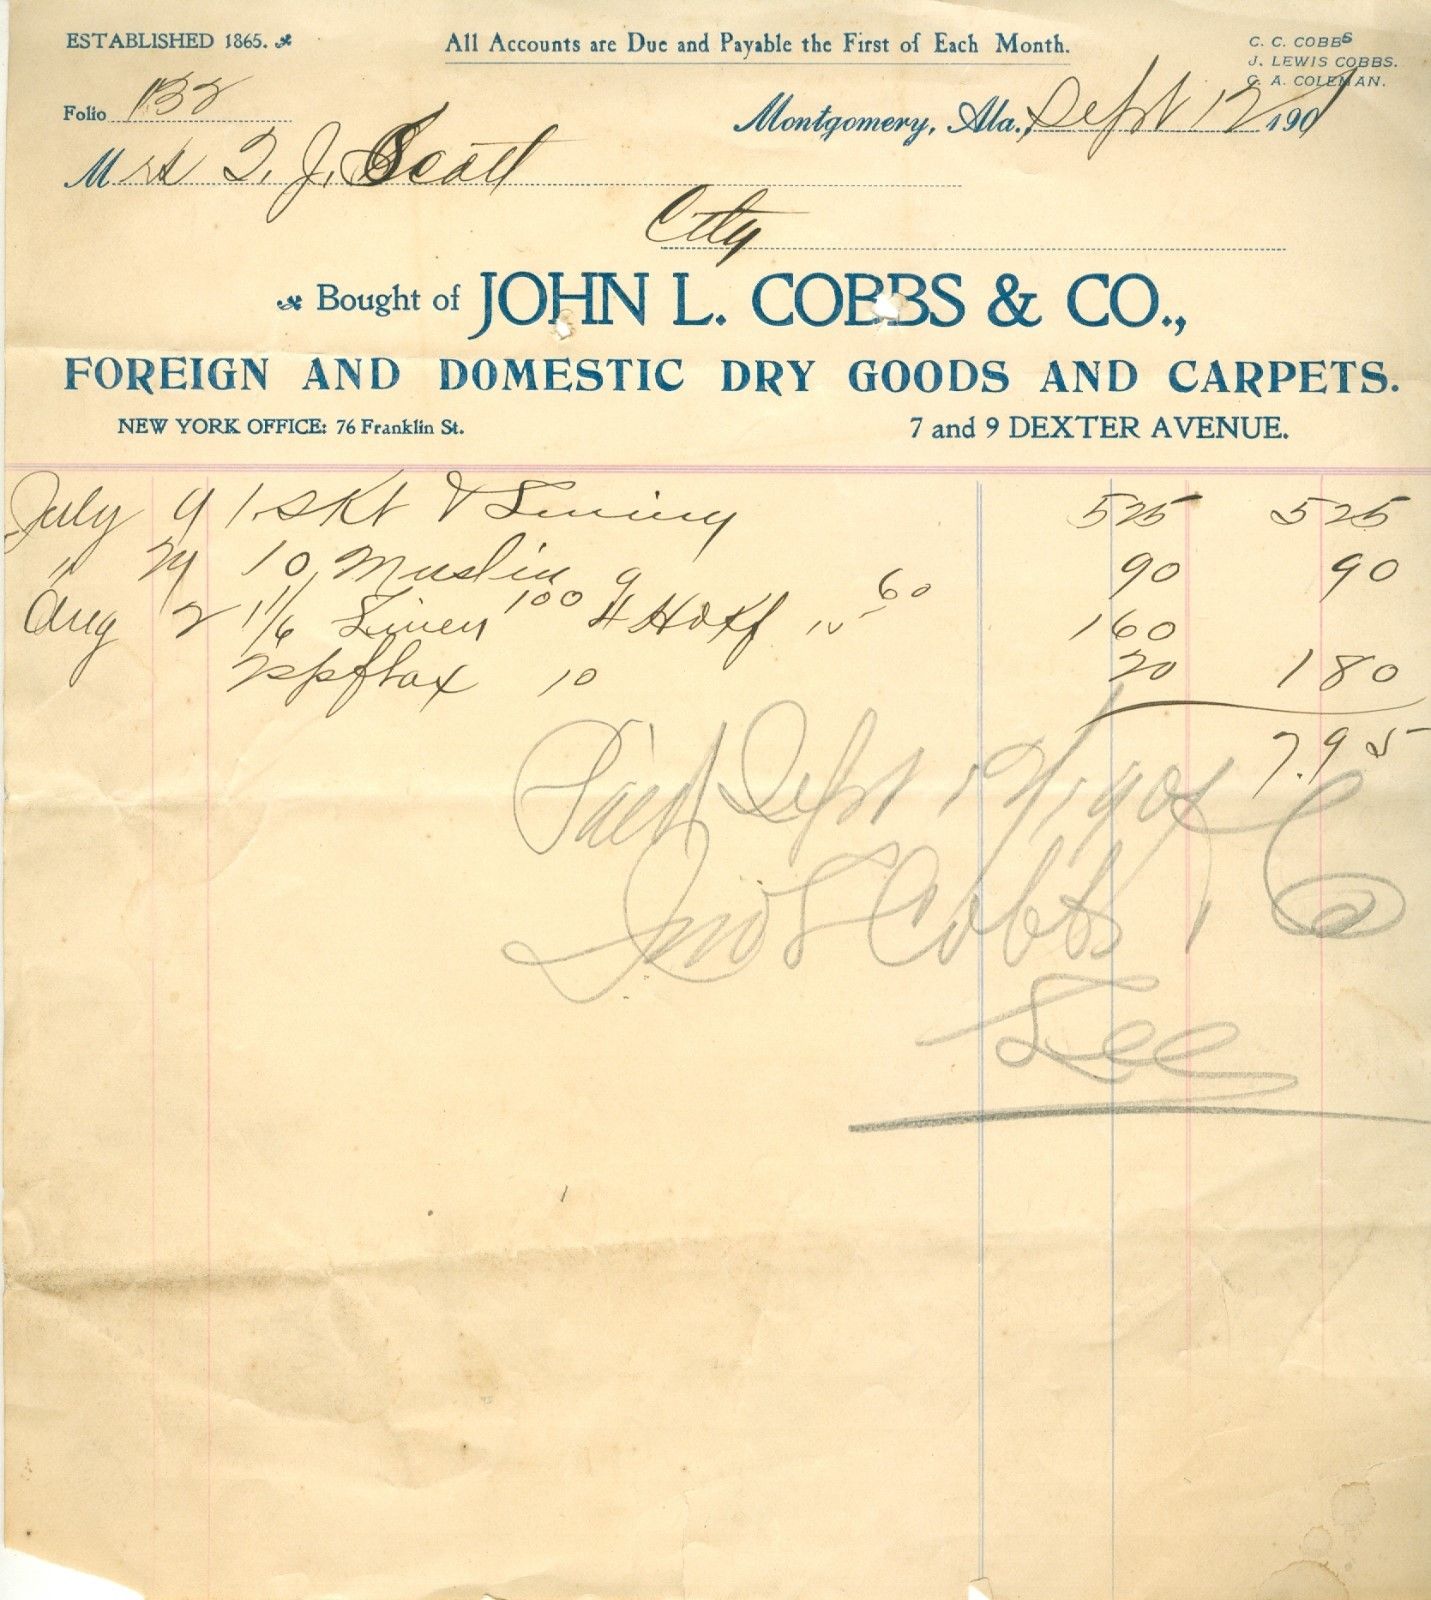 ESTABLISHED 1865.
All Accounts are Due and Payable the First of Each Month.
C. C. COBBS
J. LEWIS COBBS.
C. A. COLEMAN.
Folio 132
Montgomery, Ala., Sept 12 1901
Mrs T. J. Scott
City
Bought of JOHN L. COBBS & CO.,
FOREIGN AND DOMESTIC DRY GOODS AND CARPETS.
NEW YORK OFFICE: 76 Franklin St.
7 and 9 DEXTER AVENUE.
July 9 1 Skt & Lining 525 525
" 29 10 Muslin 9 90 90
Aug 2 1 1/6 Linen 100 4 Hdkf 15 60 160
2 flax 10 20 180
7.95
Paid Sept 12/1901
Jno L Cobbs & Co
Lee